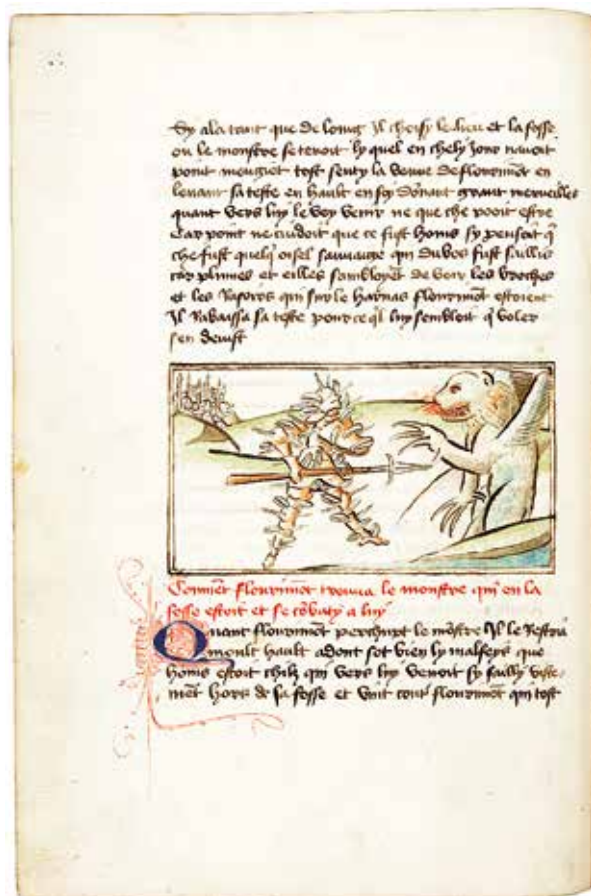 Sy ala tant que de loing Il choisy le lieu et la fosse
ou le monstre se tenoit ly quel en chely jour navoit
point mengiet tost senty la venue de flourimōt en
levant sa teste en hault en soy dōnant grant merveilles
quant vers luy le vey venir ne que che pooit estre
Car point ne cuidoit que ce fust homs sy pensoit q̄
che fust quelq̄ oisel sauvaige qui du bos fust saillis
car plumes et elles sambloyēt de veoir les broches
et les Rasoirs qui sur le harnas flourimōt estoient
Il Rabaissa sa teste pour ce q̄l luy sembloit q̄ voler
sen deust
Commēt flourimōt trouva le monstre qui en la
fosse estoit et se cōbaty a luy
Quant flourimōt perchupt le mōstre Il le
moult hault adont sot bien ly que
homs estoit chilz qui vers luy venoit sy sailly viste-
mēt hors de sa fosse et vint flourimōt qui tost